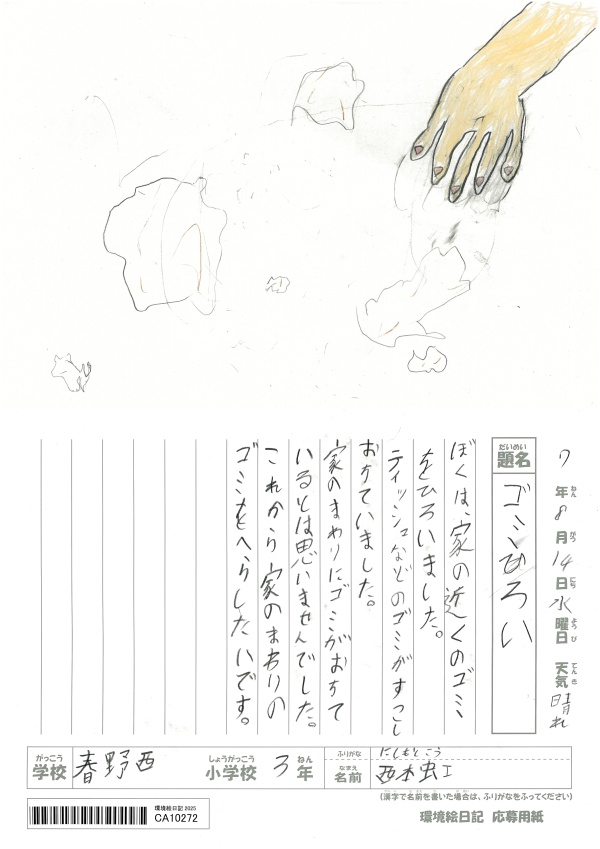 7年8月14日水曜日 天気晴れ
ねん がつ にち ようび てんき
だいめい
題名 ゴミひろい
ぼくは、家の近くのゴミ
をひろいました。
ティッシュなどのゴミがすこし
おちていました。
家のまわりにゴミがおちて
いるとは思いませんでした。
これから家のまわりの
ゴミをへらしたいです。
がっこう しょうがっこう ねん
学校 春野西 小学校 3年
ふりがな にしもとこう
なまえ
名前 西本
(漢字で名前を書いた場合は、ふりがなをふってください)
環境絵日記 2025
CA10272
環境絵日記 応募用紙